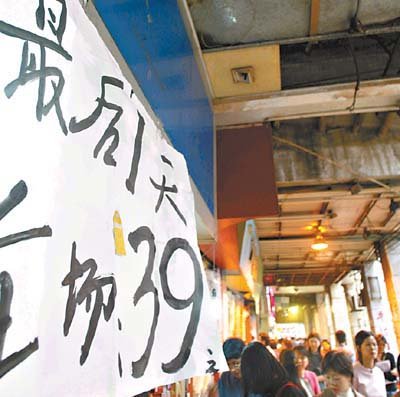 最后1天
场39元